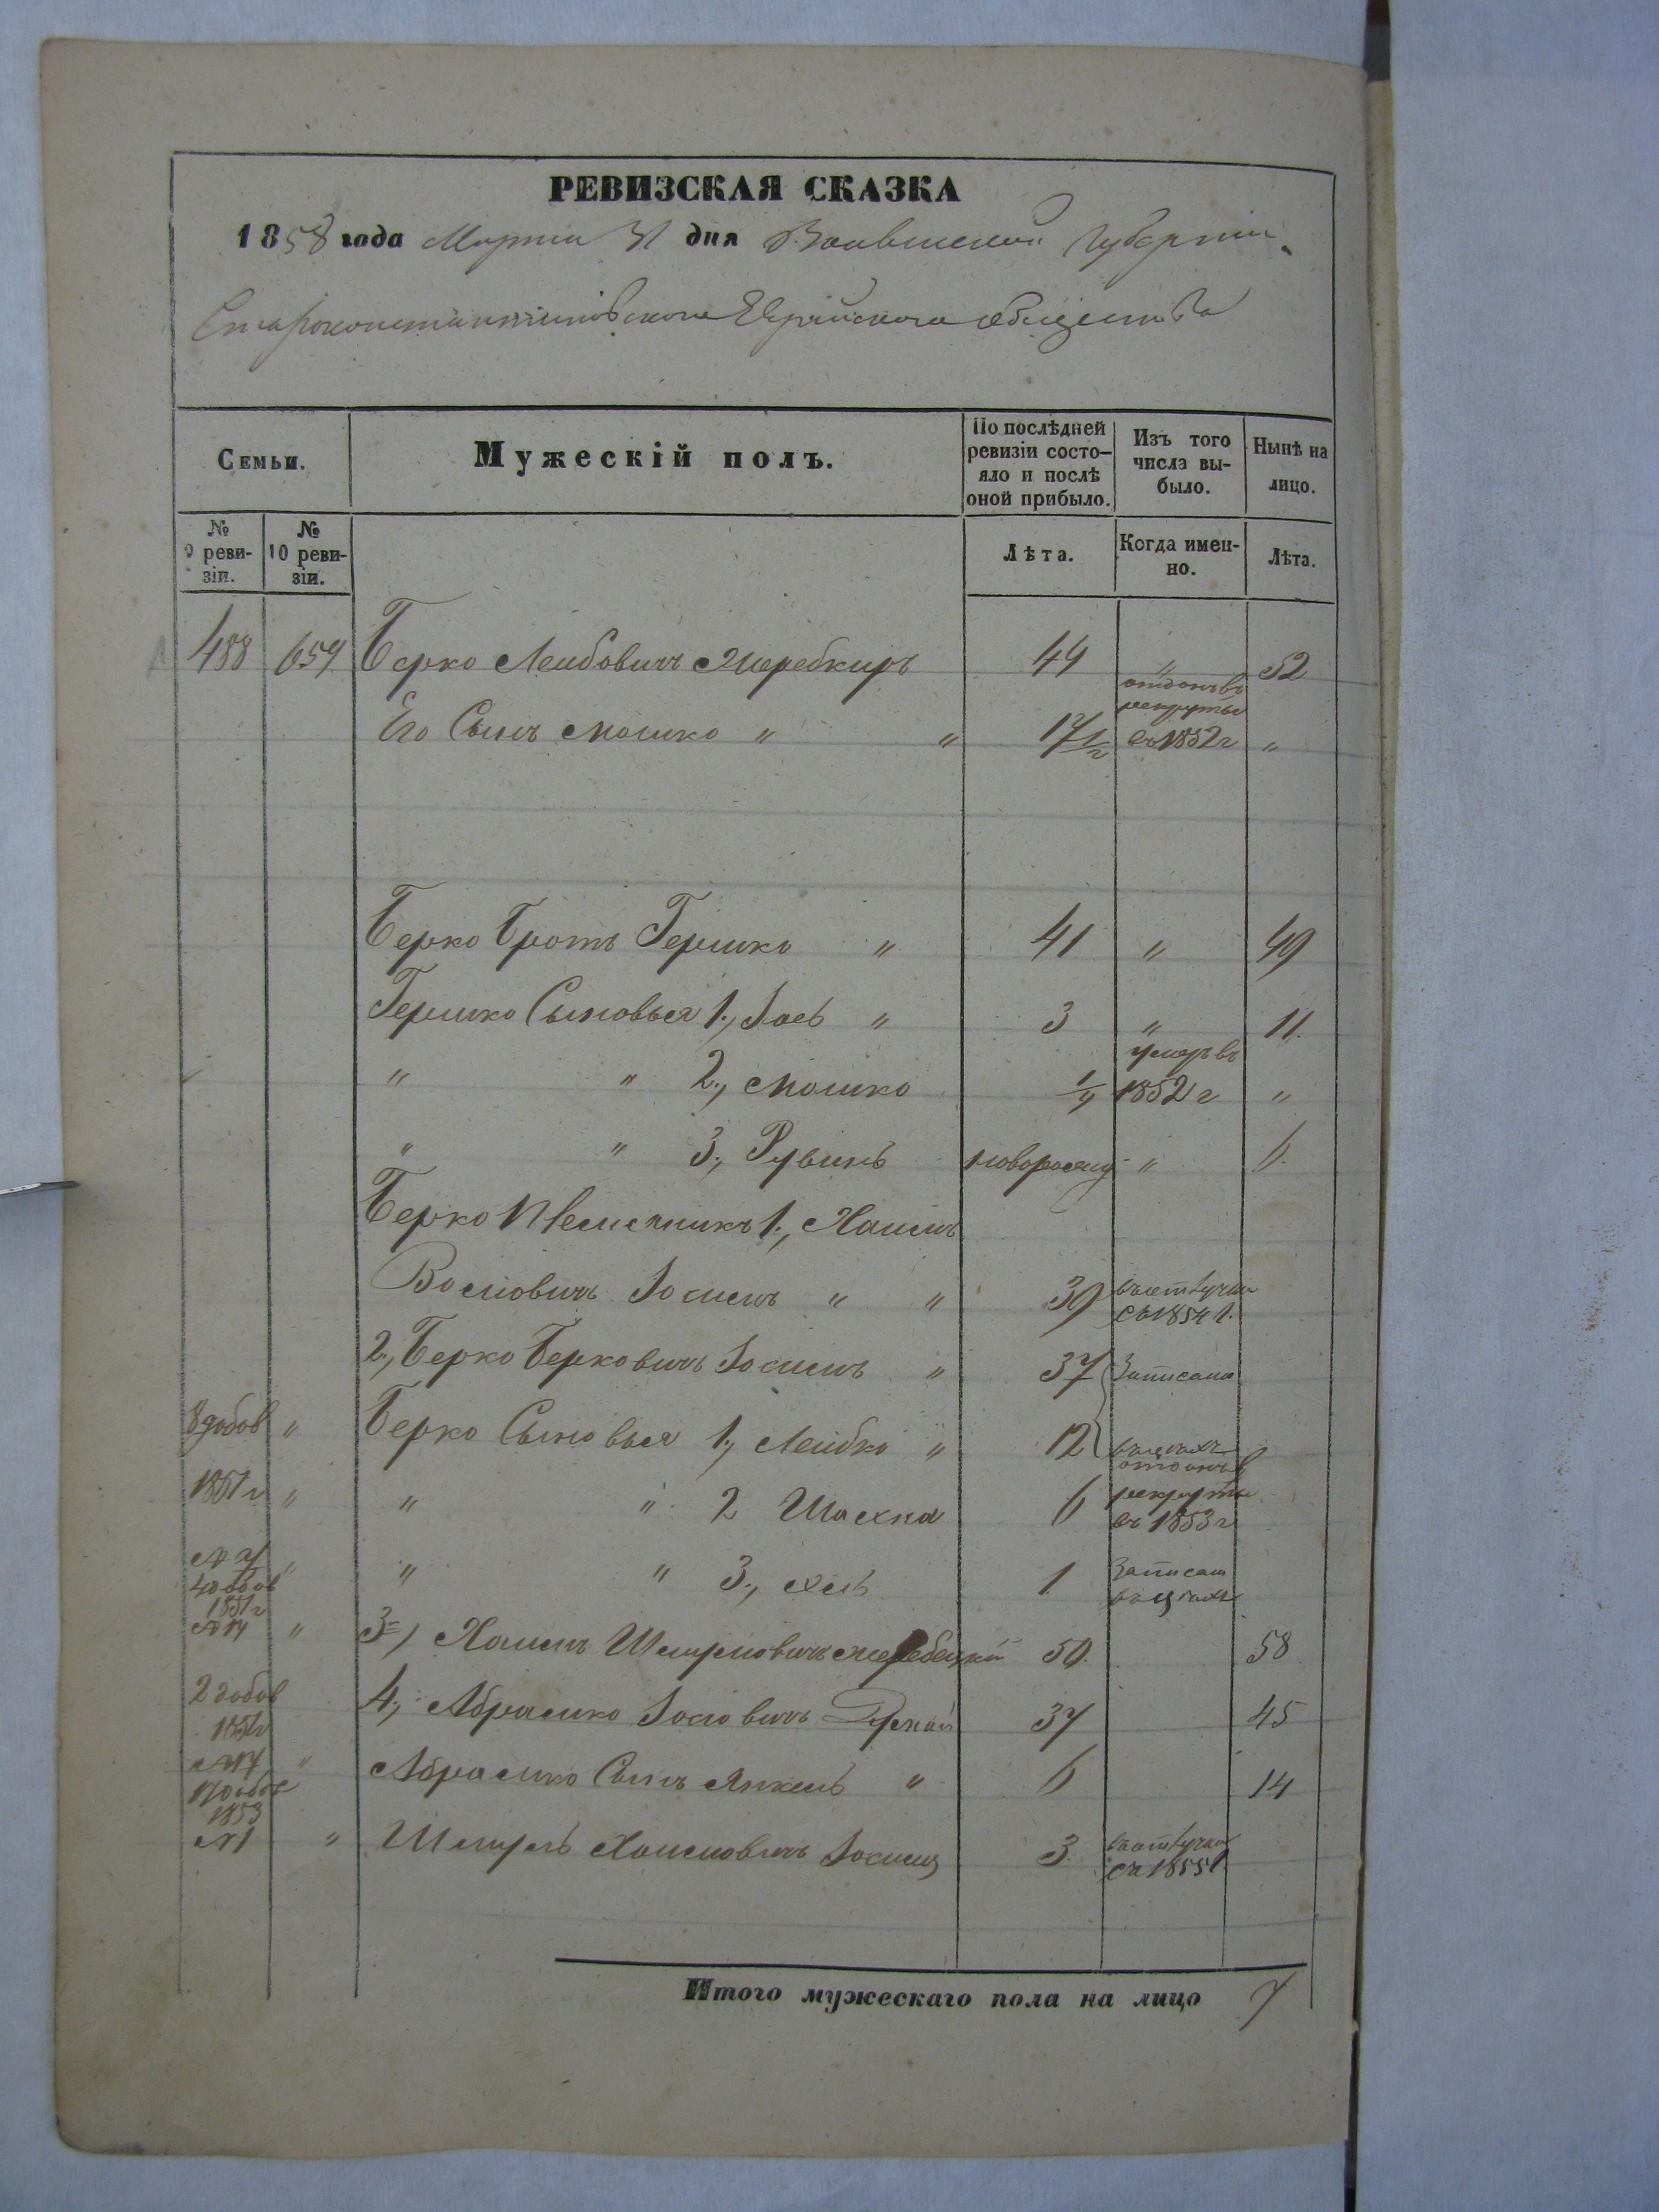 РЕВИЗСКАЯ СКАЗКА
1858 года Марта 31 дня Волынской Губернии
Староконстантиновского Еврейского общества
Семьи. Мужескій полъ. По послѣдней ревизіи состояло и послѣ оной прибыло. Изъ того числа выбыло. Нынѣ на лицо.
№ 9 ревизіи. № 10 ревизіи. Лѣта. Когда именно. Лѣта.
488 659 Берко Лейбовичъ 44 " 52
Его Сынъ Мошко " " 17 1/2 отданъ въ рекруты въ 1852 г "
Берко Братъ Гершко " 41 " 49
Гершко Сыновья 1., Іось " 3 " 11.
" " 2., Мошко 1/4 умеръ въ 1852 г "
" " 3., Рувинъ новорожд " 6.
Берко Племенникъ 1., Хаимъ
Іосиовичъ " " 39 въ отлучки съ 1854 г.
2., Берко Берковичъ " 37 Записаны
8 добов " Берко Сыновья 1., Лейбко " 12 въ цехъ
1851 г " " " 2 Шахна 6 отданъ въ рекруты въ 1853 г
" " " 3., 1 Записан въ цехъ
4 добов
1851 г
№ 14 " 3) Хаимъ Шмулиовичъ 50. 58
2 добов
1851 г 4., Абрамко Іосиовичъ 37 45
№ 14 " Абрамко Сынъ Янкель " 6 14
1853
№ 1 " Шмуль Хаимовичъ 3. въ отлучки съ 1855 г.
Итого мужескаго пола на лицо 7